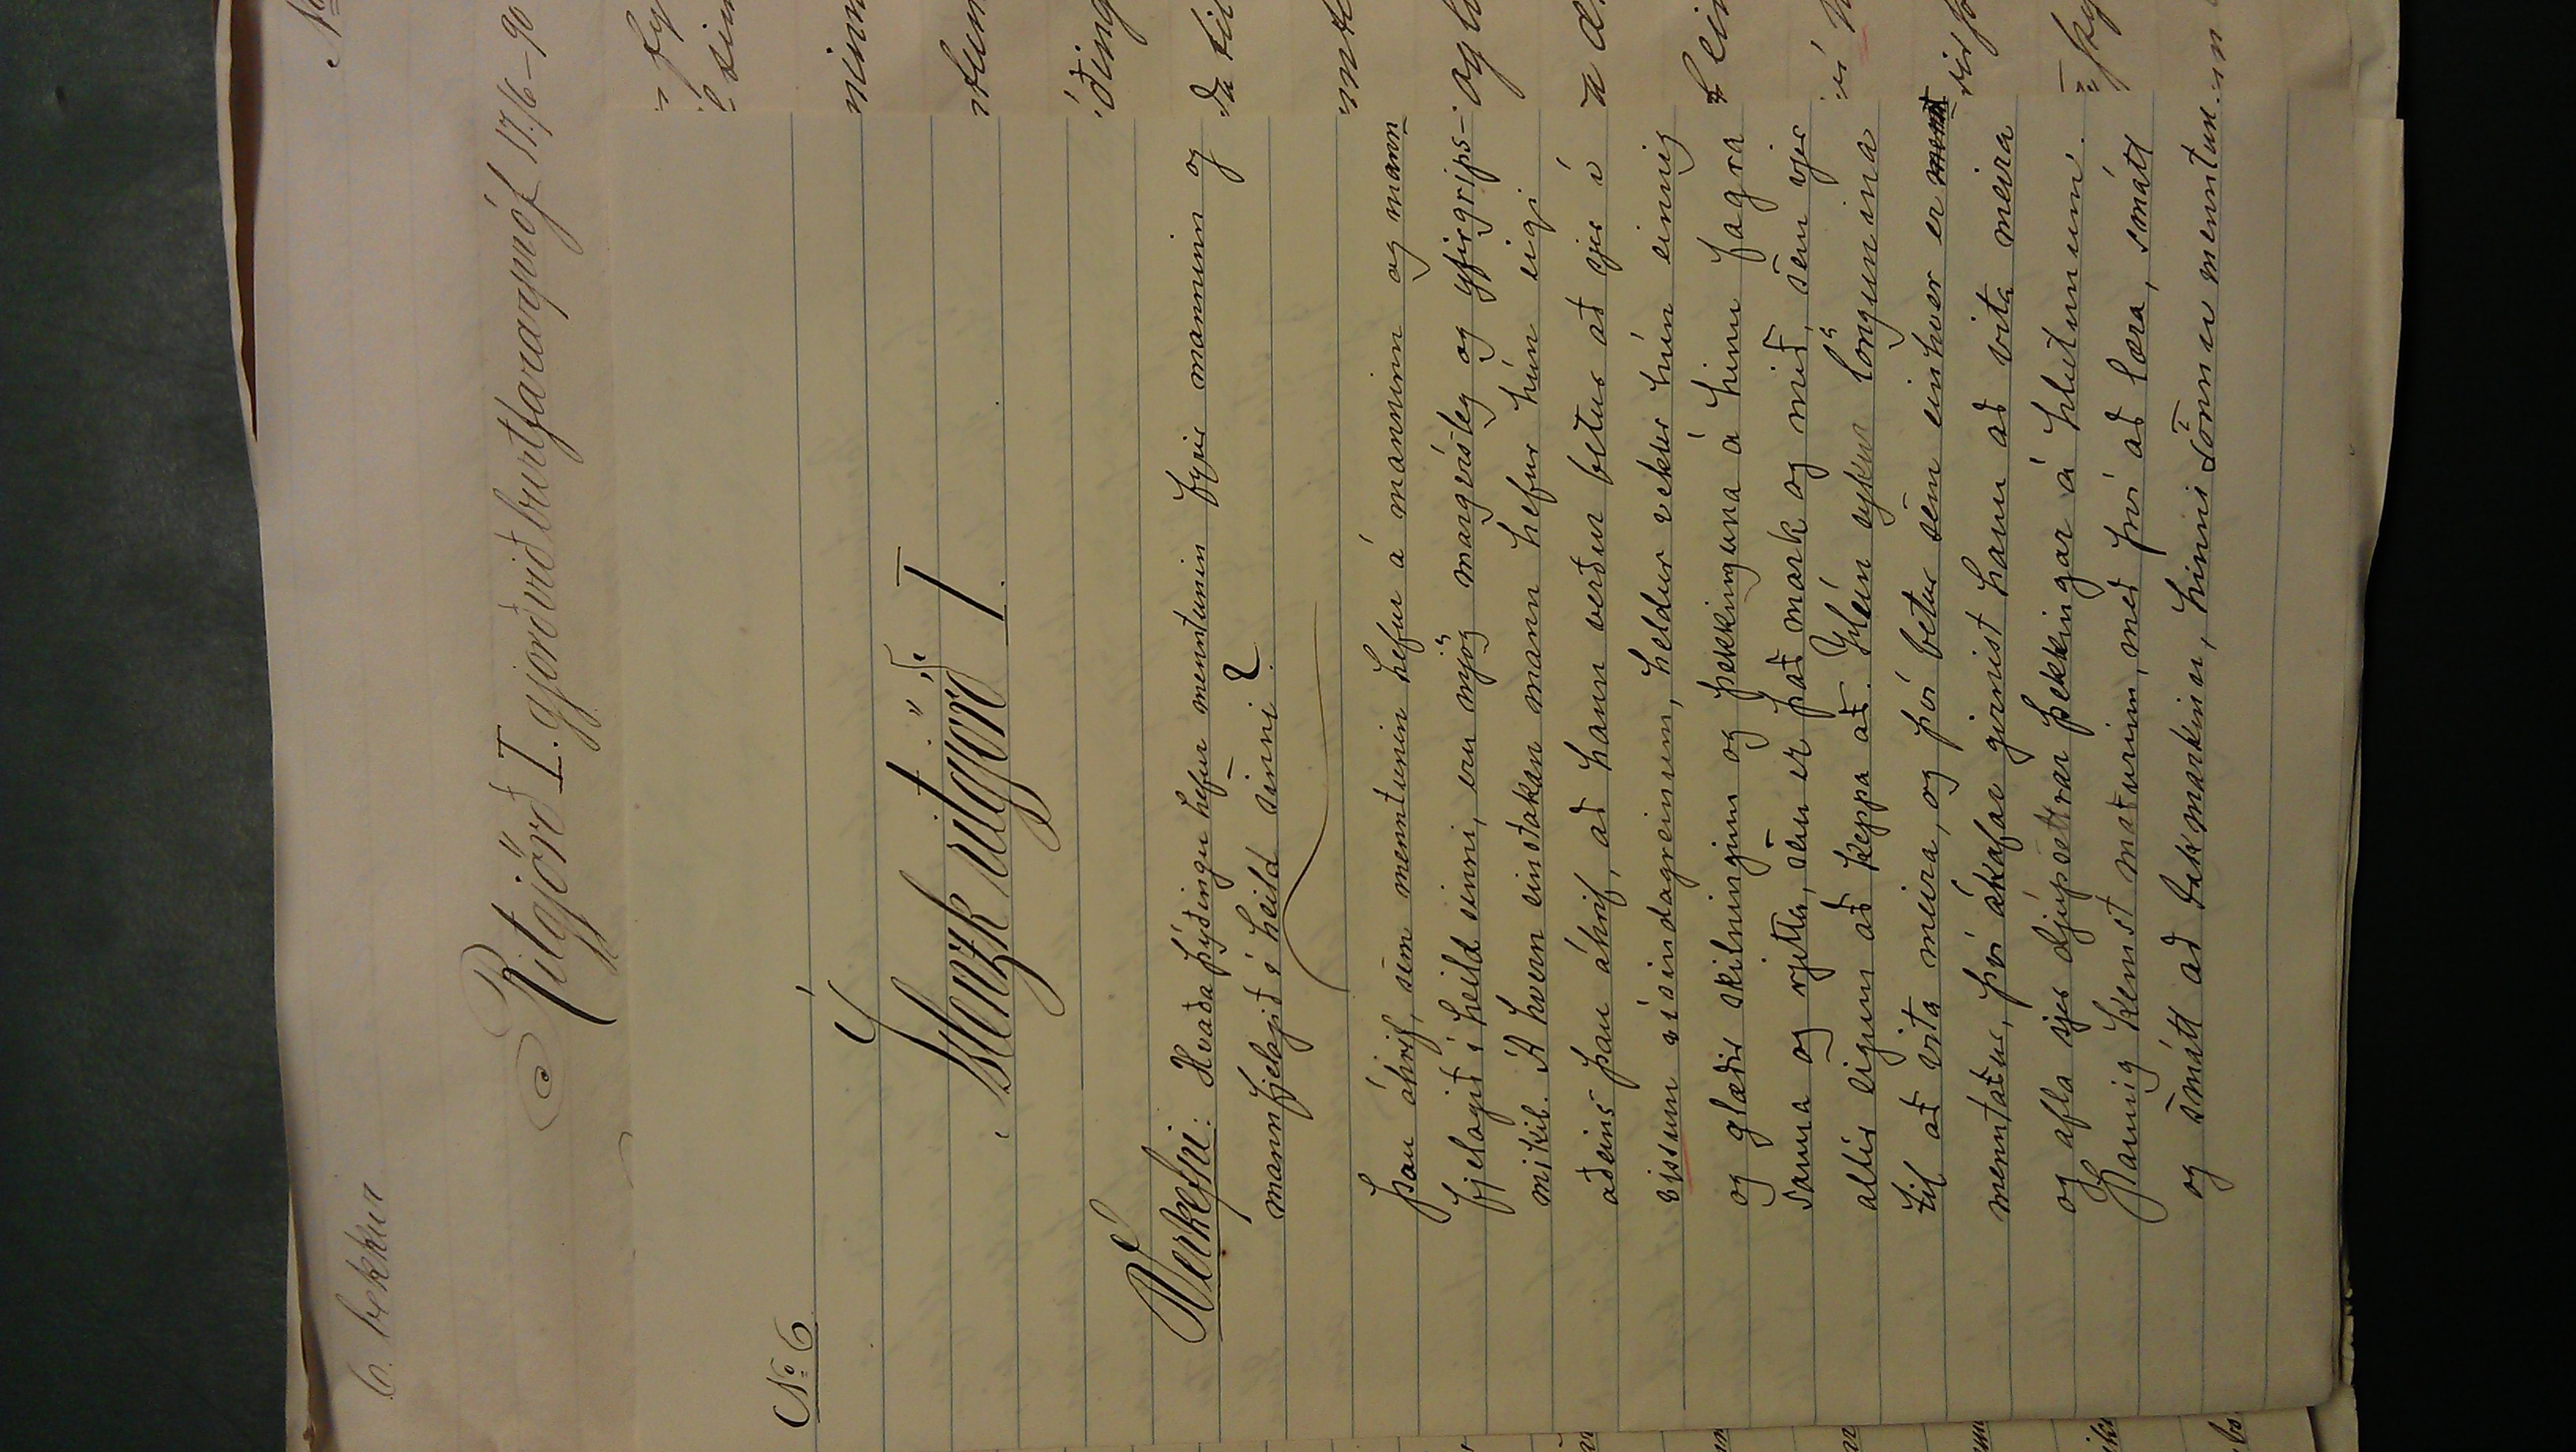 6. bekkur
Ritgjörð I. gjörð við burtfararpróf 17/6–90
No 6
Íslenzk ritgjörð I.
Verkefni: Hvaða þýðingu hefur menntunin fyrir manninn og
mannfjelagið í heild sinni?
Þau áhrif, sem menntunin hefur á manninn og mann
fjelagið í heild sinni, eru mjög margvísleg og yfirgrips-
mikil. Á hvern einstakan mann hefur hún eigi
aðeins þau áhrif, að hann verður betur að sjer í
vissum vísindagreinum, heldur vekur hún einnig
og glæðir skilninginn og þekkinguna á hinu fagra
sanna og rjetta, sem er það mark og mið, sem vjer
allir eigum að keppa að. Hún eykur löngunina
til að vita meira, og því betur sem einhver er
menntaður, því ákafar girnist hann að vita meira
og afla sjer djúpsettrar þekkingar á hlutunum.
Þannig kemst maðurinn, með því að læra, smátt
og smátt að takmarkinu, hinni sönnu menntun.